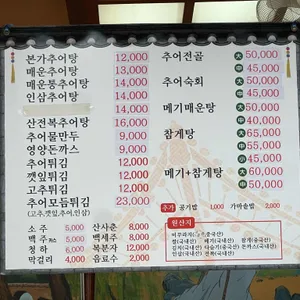 본가추어탕 12,000
매운추어탕 14,000
매운통추어탕 14,000
인삼추어탕 14,000
14,000
산전복추어탕 16,000
추어물만두 9,000
영양돈까스 9,000
추어튀김 12,000
깻잎튀김 12,000
고추튀김 12,000
추어모듬튀김 23,000
(고추,깻잎,추어,인삼)
소주 5,000 산사춘 8,000
맥주 5,000 백세주 8,000
청하 6,000 복분자 12,000
막걸리 4,000 음료수 2,000
추어전골 大 50,000
中 45,000
추어숙회 大 50,000
中 45,000
메기매운탕 大 50,000
中 40,000
참게탕 大 65,000
中 55,000
메기+참게탕 大 60,000
中 50,000
추가 공기밥 1,000 가마솥밥 2,000
원산지